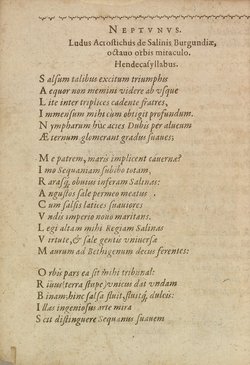 NEPTVNVS.
Ludus Acrostichus de Salinis Burgundiæ,
octauo orbis miraculo.
Hendecasyllabus.
S alsum talibus excitum triumphis
A equor non memini videre ab vsque
L ite inter triplices cadente fratres,
I mmensum mihi cum obtigit profundum.
N ympharum huc acies Dubis per alueum
Æ ternum glomerant gradus suaues;
M e patrem, maris implicent cauernæ?
I mo Sequaniam subibo totam,
R arasq; obuius inferam Salinas:
A ngustos sale permeo meatus
C um salsis latices suautores
V ndis imperio nouo maritans.
L egi altam mihi Regiam Salinas
V irtute, & sale gentis vniuersa
M aurum ad Bethigenum decus ferentes:
O rbis pars ea sit mihi tribunal:
R iuus terra stupe vnicus dat vndam
B inam: hinc salsa fluit, fluitq; dulcis:
I llas ingeniosus arte mira
S cit distinguere Sequanus suauem